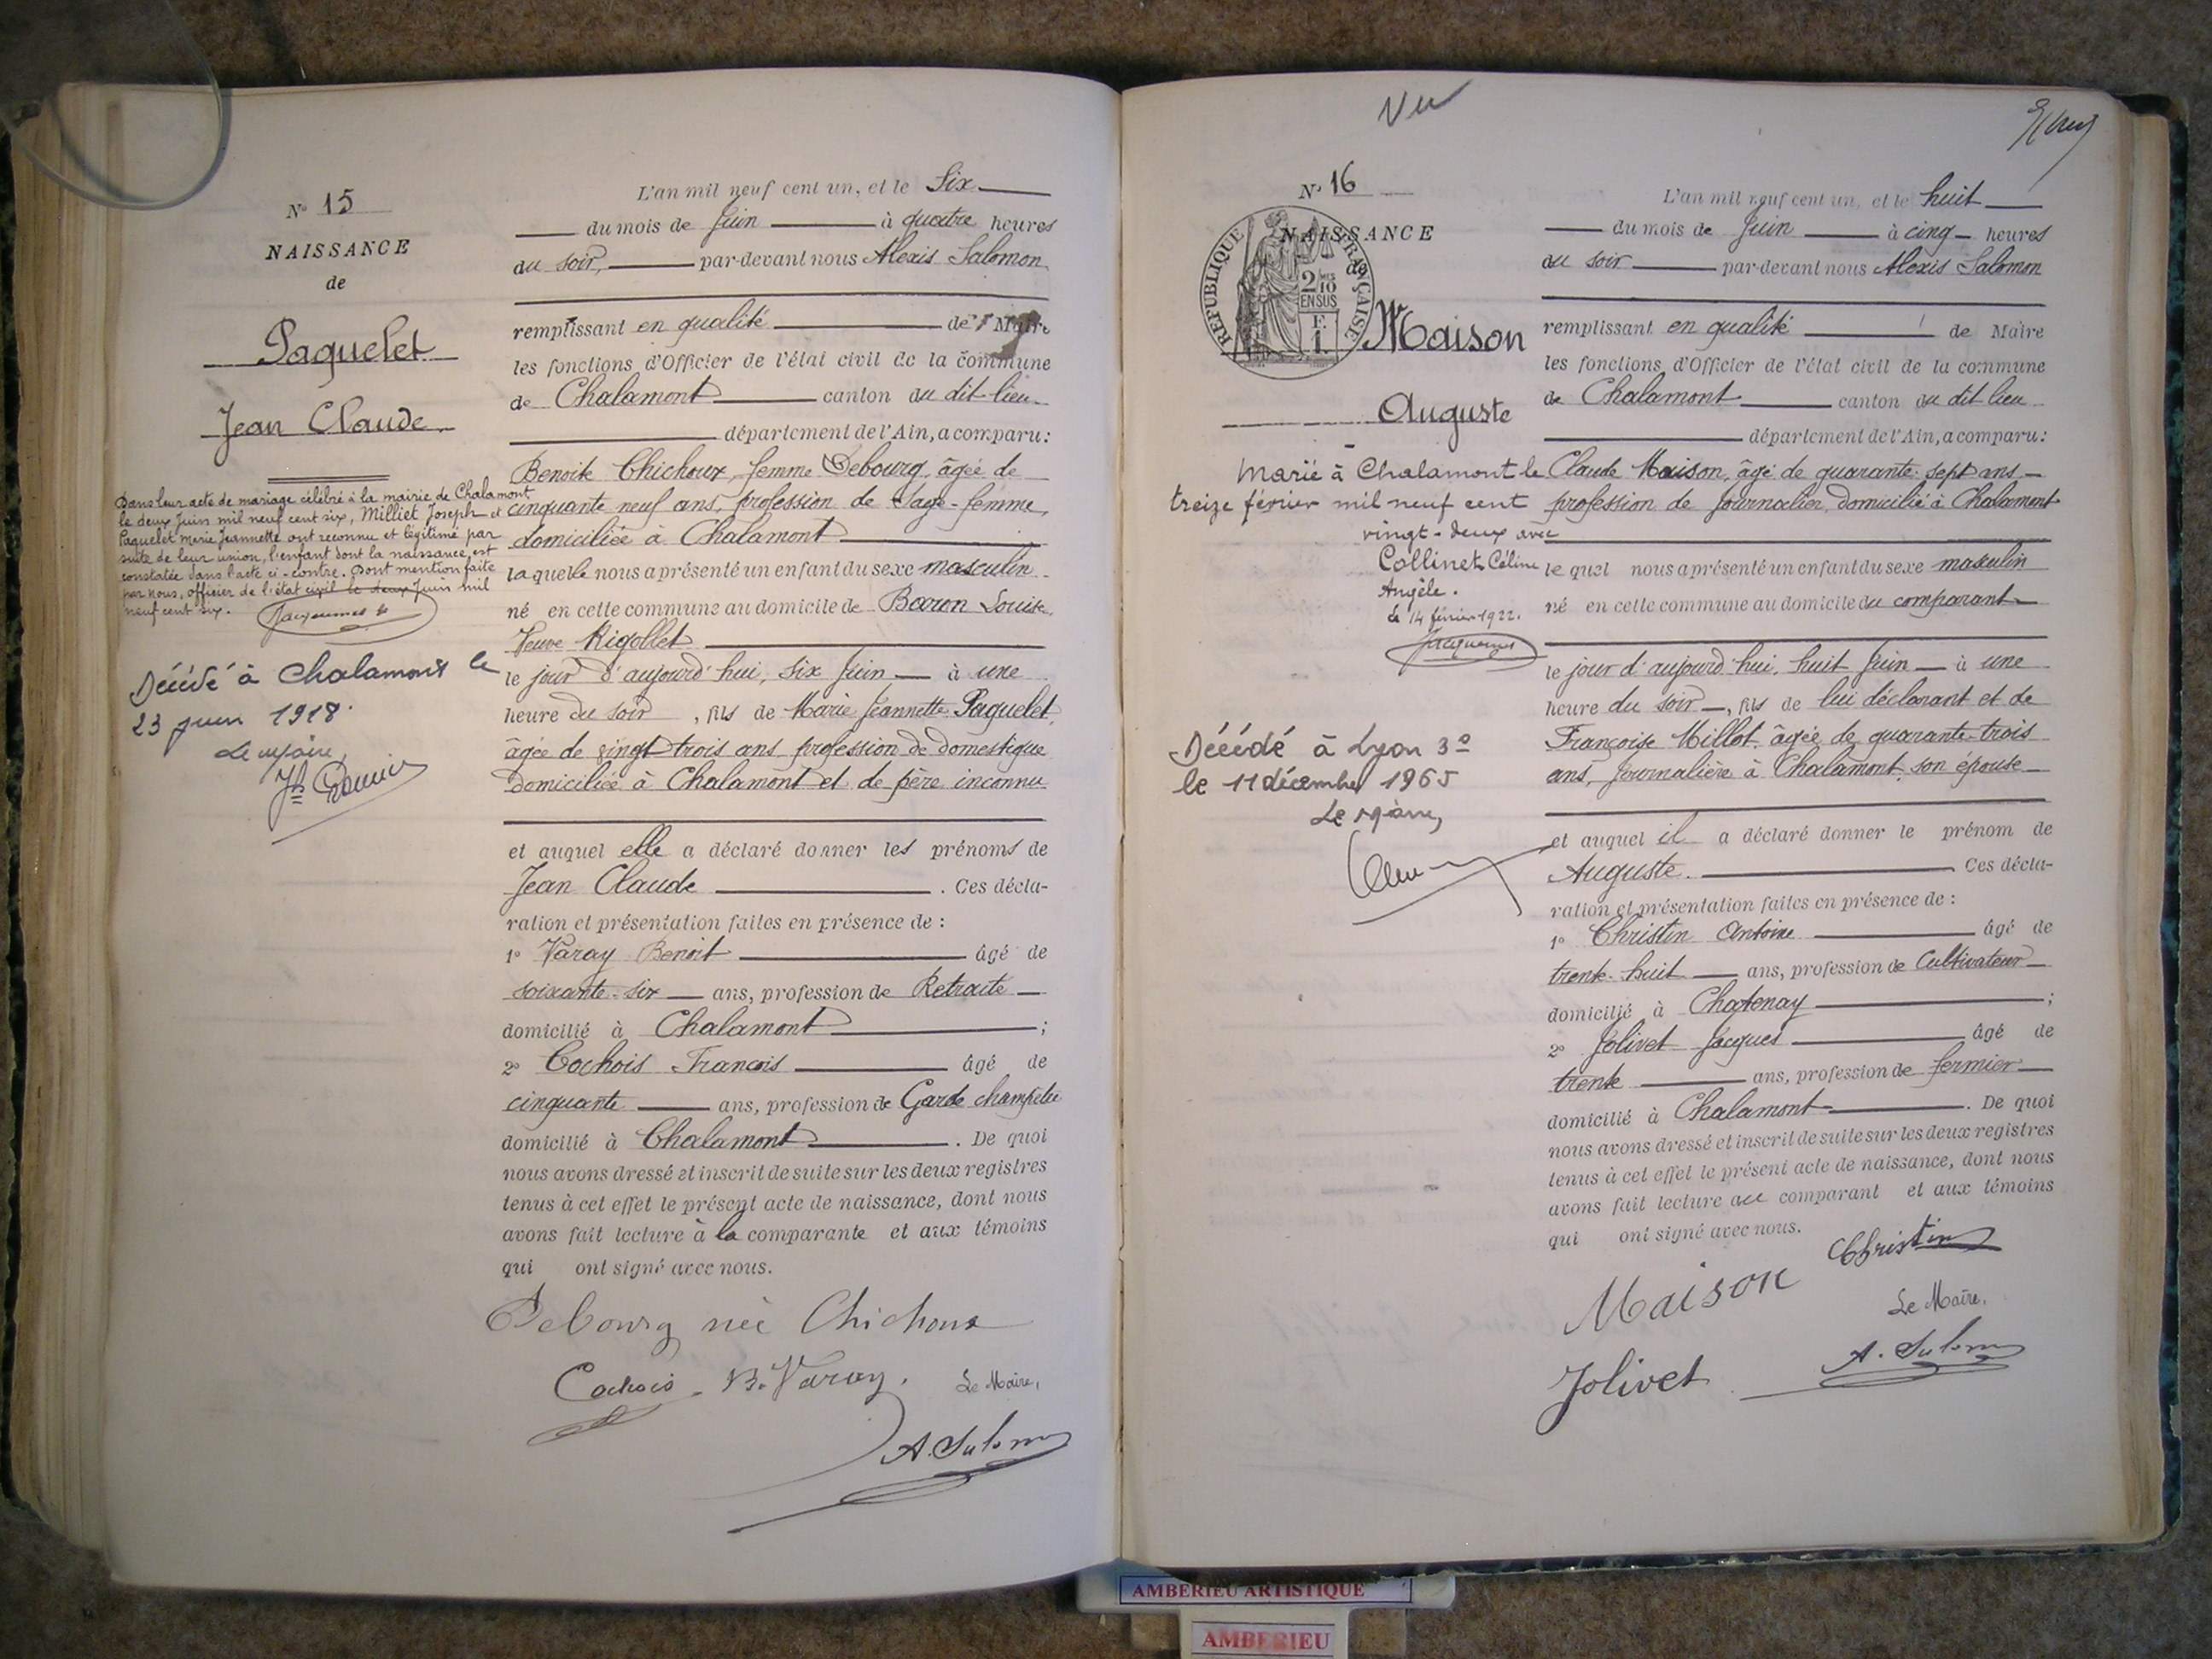 N° 15
NAISSANCE
de
Paquelet
Jean Claude
Dans leur acte de mariage célébré à la mairie de Chalamont
le deux Juin mil neuf cent six, Milliet Joseph et
Paquelet Marie Jeannette ont reconnu et légitimé par
suite de leur union, l'enfant dont la naissance est
constatée dans l'acte ci-contre. Dont mention faite
par nous, officier de l'état civil le deux Juin mil
neuf cent six.
Décédé à Chalamont le
23 juin 1918.
Le Maire,
L'an mil neuf cent un, et le Six
du mois de Juin à quatre heures
du soir, par-devant nous Alexis Salomon
remplissant en qualité de Maire
les fonctions d'Officier de l'état civil de la commune
de Chalamont canton du dit lieu
département de l'Ain, a comparu :
Benoite Chichoux, femme Debourg, âgée de
cinquante neuf ans, profession de Sage-femme,
domiciliée à Chalamont
laquelle nous a présenté un enfant du sexe masculin
né en cette commune au domicile de Baron Louise
Veuve Rigollet
le jour d'aujourd'hui, six Juin à une
heure du soir, fils de Marie Jeannette Paquelet,
âgée de vingt-trois ans profession de domestique
domiciliée à Chalamont et de père inconnu
et auquel elle a déclaré donner les prénoms de
Jean Claude. Ces décla-
ration et présentation faites en présence de :
1° Varay Benoit âgé de
soixante-six ans, profession de Retraité
domicilié à Chalamont ;
2° Cochois Francois âgé de
cinquante ans, profession de Garde champêtre
domicilié à Chalamont. De quoi
nous avons dressé et inscrit de suite sur les deux registres
tenus à cet effet le présent acte de naissance, dont nous
avons fait lecture à la comparante et aux témoins
qui ont signé avec nous.
Debourg née Chichoux
Cochois B. Varay. Le Maire,
A. Salomon
Vu
N° 16
NAISSANCE
de
RÉPUBLIQUE FRANÇAISE
2/10
EN SUS
Maison
Auguste
Marié à Chalamont le
treize février mil neuf cent
vingt-deux avec
Collinet Céline
Angèle.
Le 14 février 1922.
Décédé à Lyon 3e
le 11 décembre 1965
Le Maire,
L'an mil neuf cent un, et le huit
du mois de Juin à cinq heures
du soir par-devant nous Alexis Salomon
remplissant en qualité de Maire
les fonctions d'Officier de l'état civil de la commune
de Chalamont canton du dit lieu
département de l'Ain, a comparu :
Claude Maison, âgé de quarante-sept ans
profession de Journalier, domicilié à Chalamont
lequel nous a présenté un enfant du sexe masculin
né en cette commune au domicile du comparant
le jour d'aujourd'hui, huit Juin à une
heure du soir, fils de lui déclarant et de
Françoise Millot, âgée de quarante-trois
ans, Journalière à Chalamont, son épouse
et auquel il a déclaré donner le prénom de
Auguste. Ces décla-
ration et présentation faites en présence de :
1° Christin Antoine âgé de
trente-huit ans, profession de Cultivateur
domicilié à Chatenay ;
2° Jolivet Jacques âgé de
trente ans, profession de fermier
domicilié à Chalamont. De quoi
nous avons dressé et inscrit de suite sur les deux registres
tenus à cet effet le présent acte de naissance, dont nous
avons fait lecture au comparant et aux témoins
qui ont signé avec nous.
Christin
Maison
Le Maire,
Jolivet
A. Salomon
AMBERIEU ARTISTIQUE
AMBERIEU